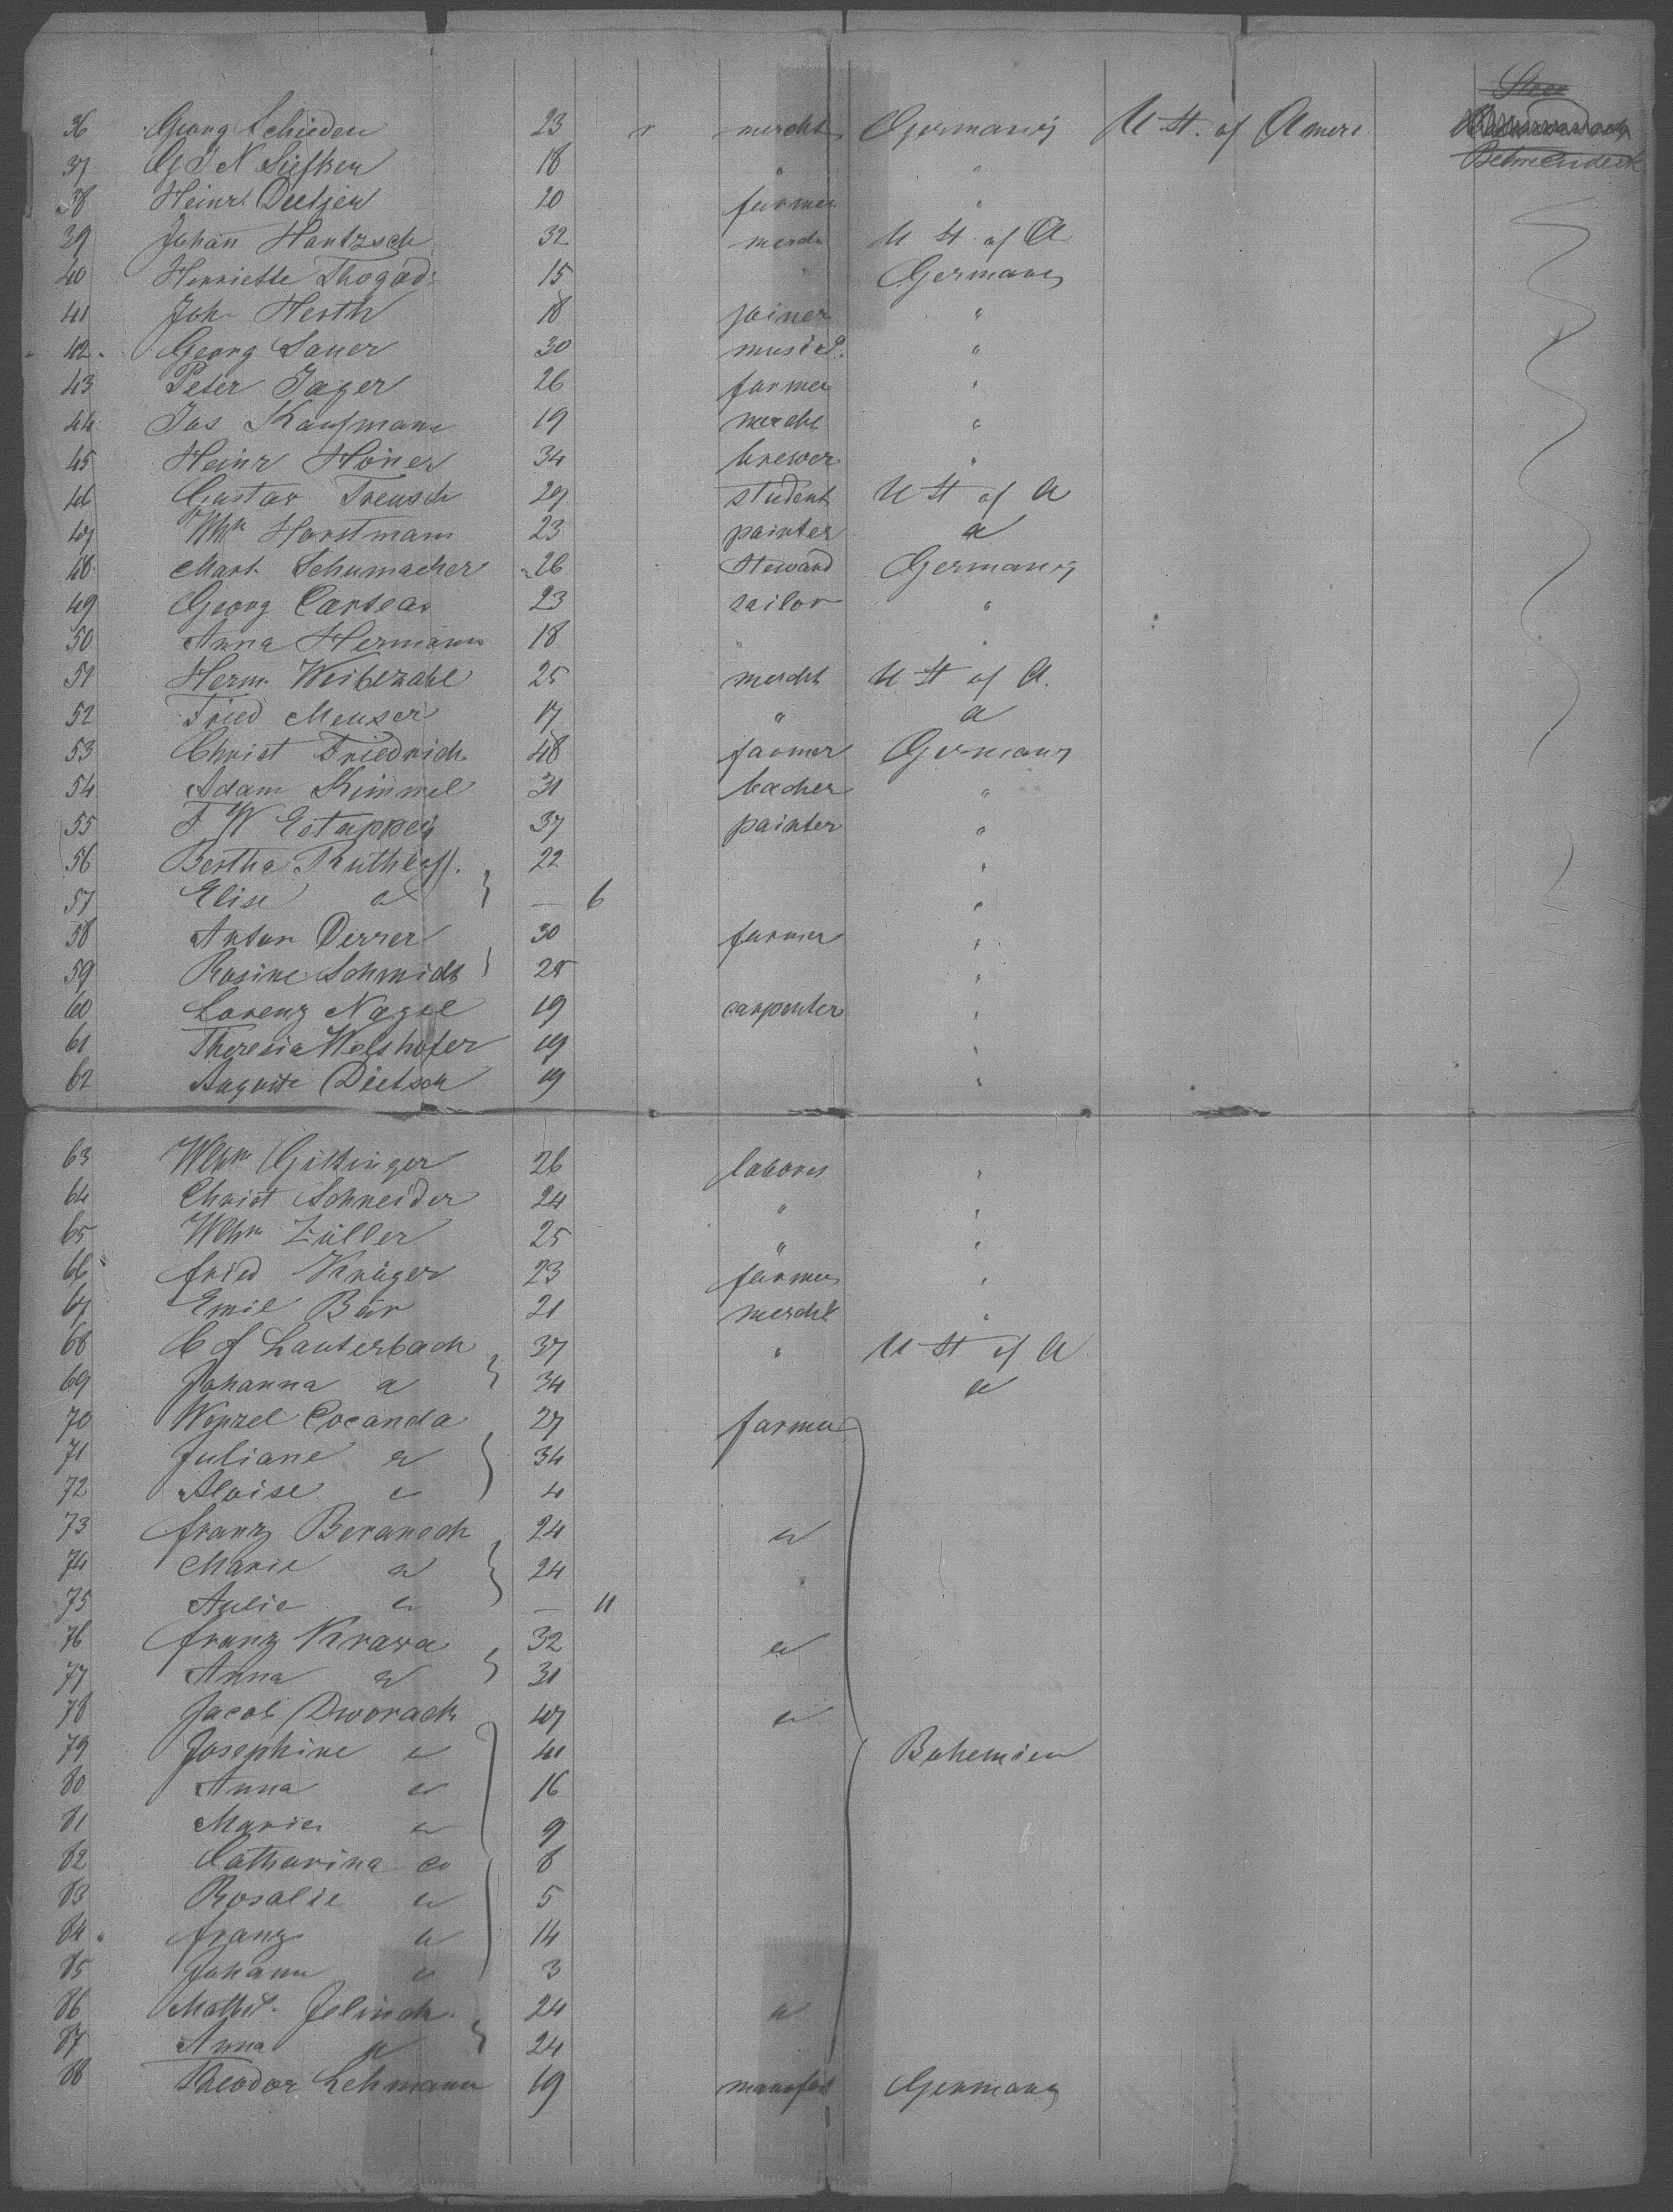 36 Georg Schieden 23 " mercht Germany U St. of Amere
37 G J N Siefken 18 " "
38 Heinr. Deetjen 20 farmer "
39 Johan Hantzsch 32 merch U St. of A
40 Henriette 15 Germany
41 Joh. Herth 18 joiner "
42 Georg Sauer 30 "
43 Peter Jager 26 farmer "
44 Jos Kaufmann 19 mercht "
45 Heinr Höner 34 brewer "
46 Gustav Treusch 29 student U St of A
47 Wlhm Horstmann 23 painter a
48 Mart. Schumacher 26 Steward Germany
49 Georg 23 sailor "
50 Anna Hermann 18 " "
51 Herm. Weibezahl 25 mercht U St of A.
52 Fried Meuser 17 " a
53 Christ Friedrich 48 farmer Germany
54 Adam Kimmel 31 bacher "
55 F. W 37 painter "
56 Bertha 22 "
57 Elise a — 6 "
58 Anton Derrer 30 farmer "
59 Rosine Schmidt 25 "
60 Lorenz Nagel 19 carpenter "
61 Theresia Welshofer 19 "
62 Auguste Dietsch 19 "
63 Wlhm Gittinger 26 labores "
64 Christ Schneider 24 " "
65 Wlhm Züller 25 " "
66 Fried Krüger 23 farmer "
67 Emil Bär 21 mercht "
68 C F Lauterbach 37 " U St of A
69 Johanna a 34 a
70 Wenzel Cocanda 27 farmer
71 Juliane a 34
72 Aloise a 4
73 Franz Beranech 24 a
74 Marie a 24
75 Julie a — 11
76 Franz Krava 32 a
77 Anna a 31
78 Jacob Dworack 47 a
79 Josephine a 41 Bohemien
80 Anna a 16
81 Marie a 9
82 Catharina a 8
83 Rosalie a 5
84 Franz a 14
85 Johann a 3
86 Jelinek 24 a
87 Anna a 24
88 Theodor Lehmann 19 Germany